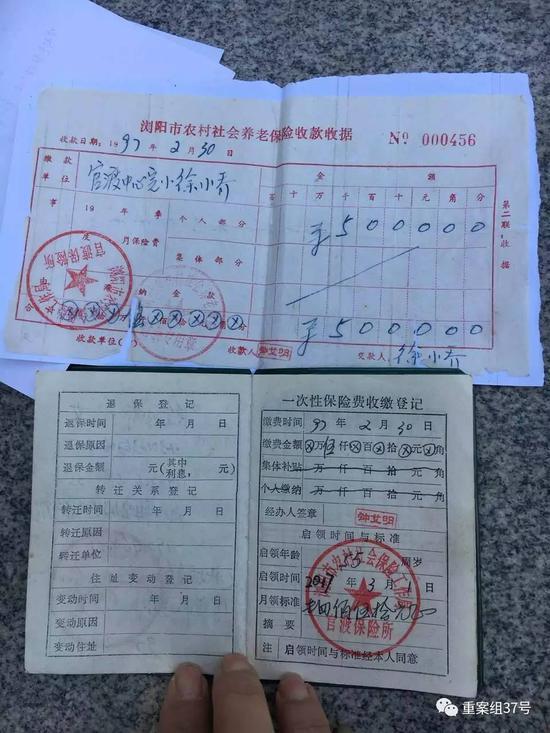 浏阳市农村社会养老保险收款收据 № 000456
收款日期：1997年2月30日
缴款单位 官渡中心完小徐小乔
金额
百十万千百十元角分
事 19 年 季 个人部分 ¥500000
度 月保险费 集体部分
纳金款
¥500000
第二联：收据
收款单位 收款人 钟艾明 交款人 徐小乔
官渡保险所
退保登记
退保时间 年 月 日
退保原因
退保金额 元(其中利息， 元)
转迁关系登记
转迁时间 年 月 日
转迁原因
转迁单位
住址变动登记
变动时间 年 月 日
变动原因
变动住址
一次性保险费收缴登记
缴费时间 97年2月30日
缴费金额 ⊗万伍仟⊗百⊗拾⊗元⊗角
集体补贴 万 仟 百 拾 元 角
个人缴纳 万 仟 百 拾 元 角
经办人签章 钟艾明
启领时间与标准
启领年龄 55 周岁
启领时间 2017年3月 日
月领标准
摘要
注 启领时间与标准经本人同意
官渡保险所
重案组37号